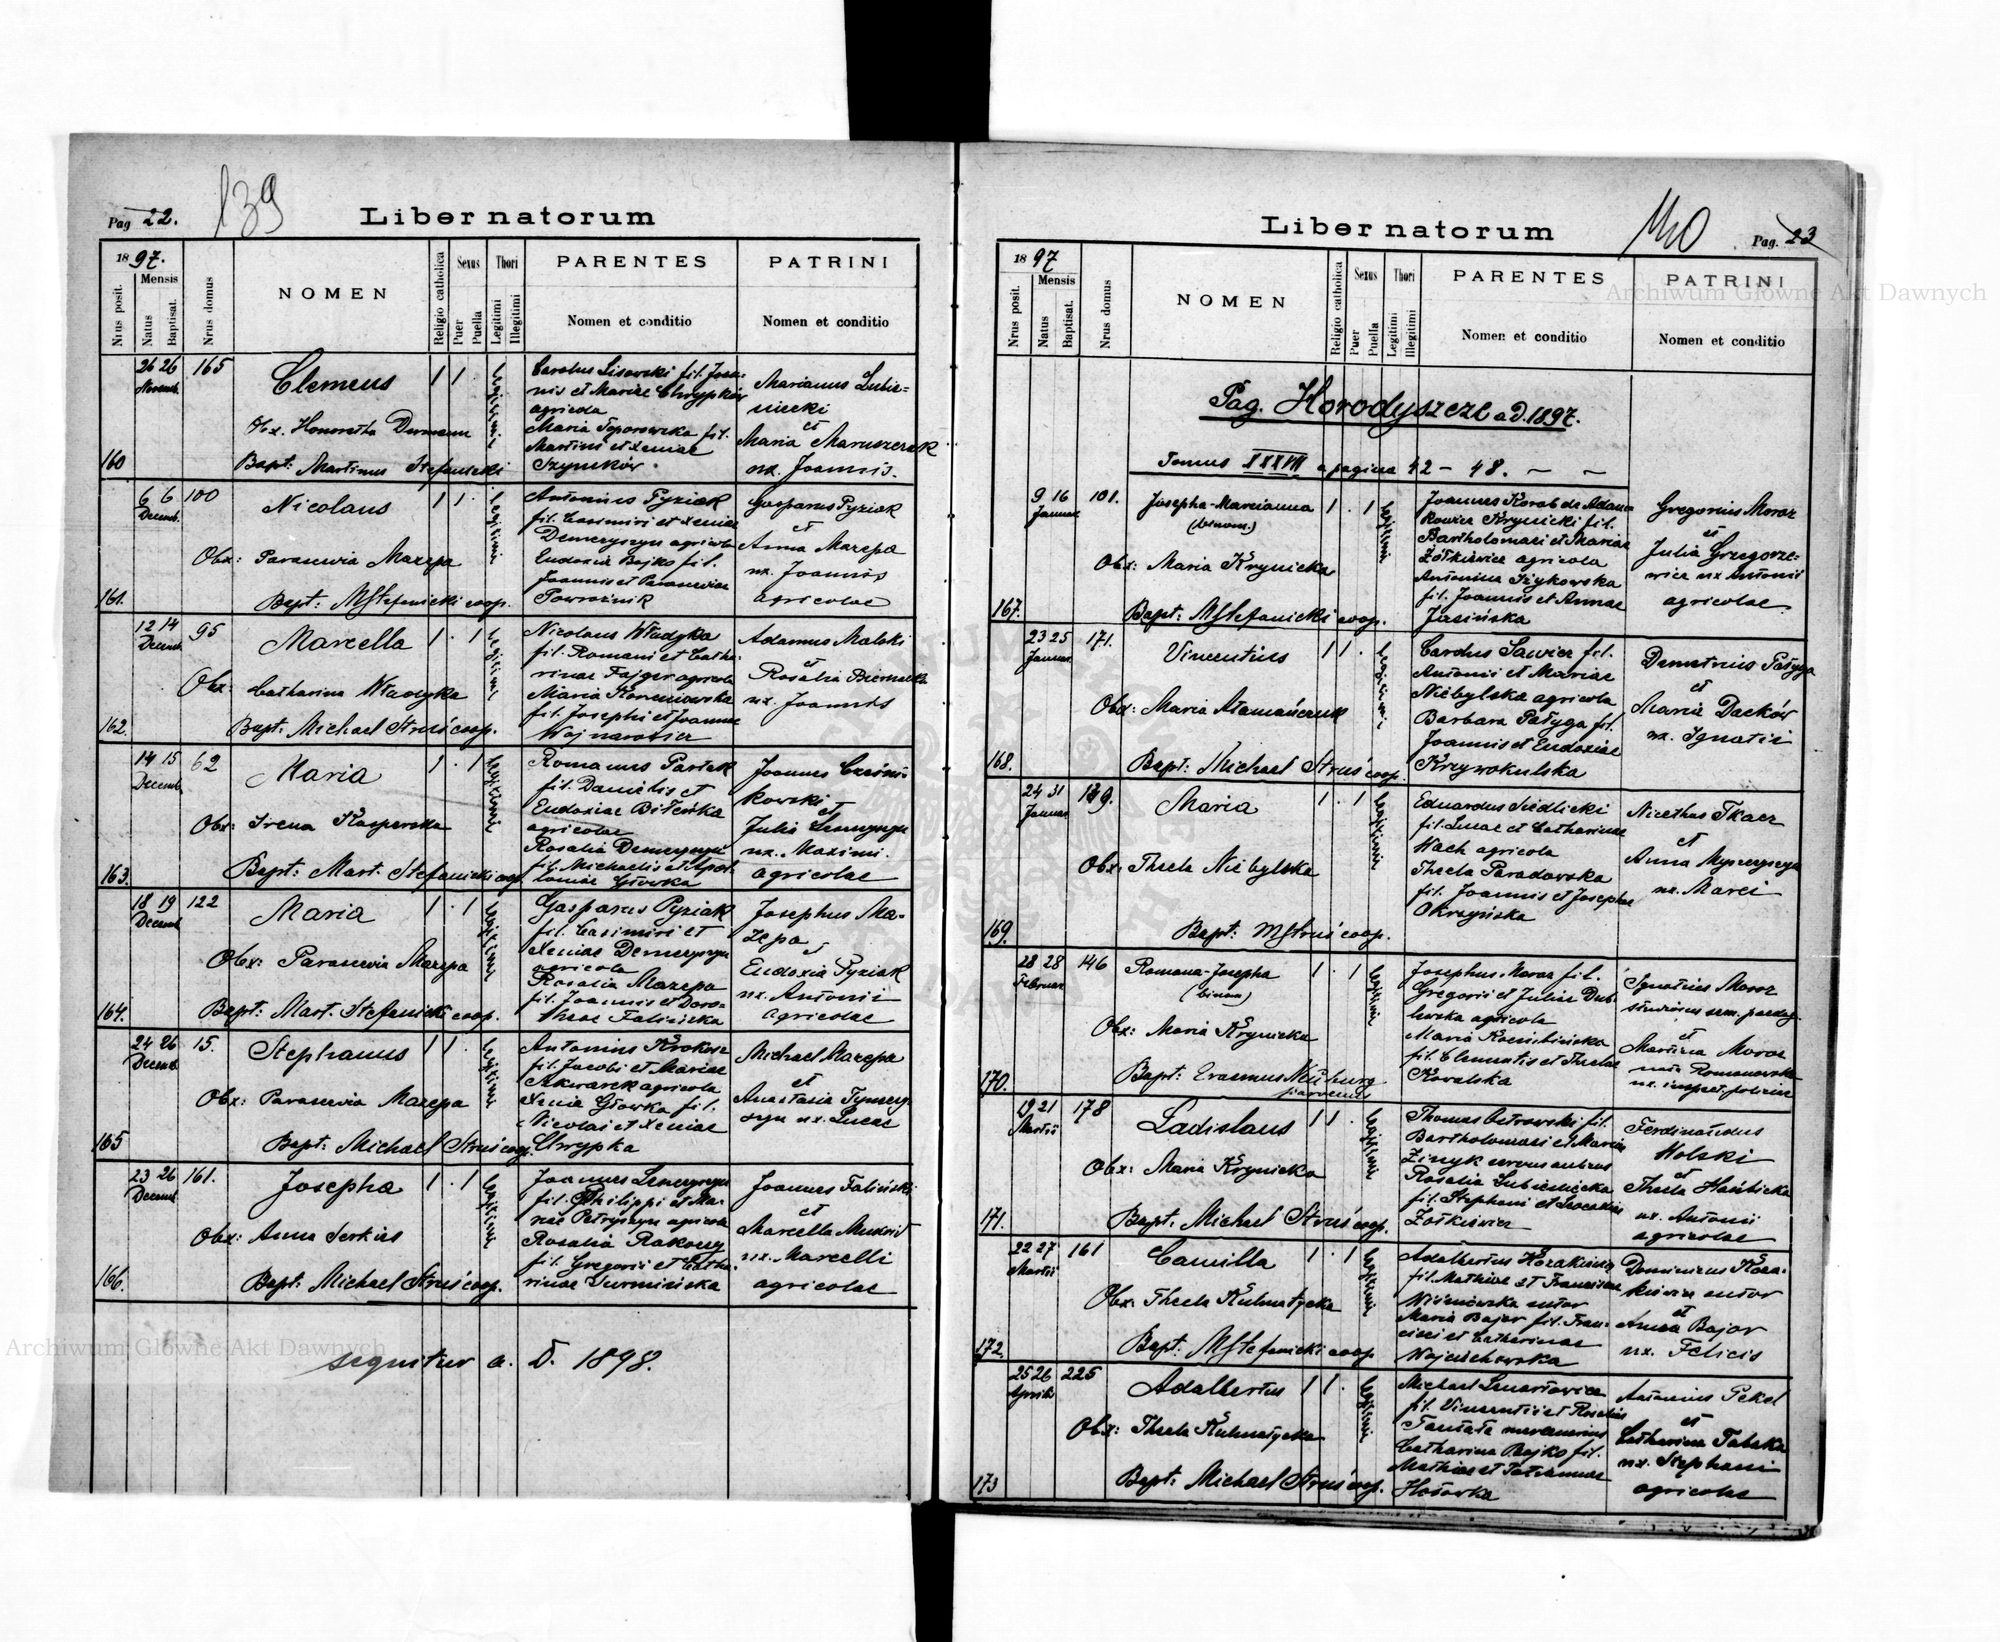 Pag 22.
139
Liber natorum
1897.
Nrus posit.
Mensis
Natus
Baptisat.
Nrus domus
NOMEN
Religio catholica
Sexus
Puer
Puella
Thori
Legitimi
Illegitimi
PARENTES
Nomen et conditio
PATRINI
Nomen et conditio
160
26 26
Novemb.
165
Clemens
Obx. Honoratha Durmann
Bapt: Martinus Stefanicki
1 1
legitimi
Carolus Lisowski fil. Joan-
nis et Mariae Chrypków
agricola
Maria Toporowska fil.
Martini et Xeniae
Szymków.
Marianus Lubie-
niecki
et
Maria Maruszczak
ux. Joannis.
161.
6 6
Decemb.
100
Nicolaus
Obx: Parascevia Mazepa
Bapt: MStefanicki coop.
1 1
legitimi
Antonius Pyziak
fil. Casimiri et Xeniae
Demeryszyn agricola
Eudoxia Bojko fil.
Joannis et Parasceviae
Powroźnik
Gasparus Pyziak
et
Anna Mazepa
ux. Joannis
agricolae
162.
12 14
Decemb.
95
Marcella
Obx: Catharina Władyka
Bapt: Michael Struś coop.
1 . 1
legitimi
Nicolaus Władyka
fil. Romani et Catha-
rinae Fajger agricola
Maria Koreniowska
fil. Josephi et Joannae
Wojnarowicz
Adamus Malski
et
Rosalia Biernacka
ux. Joannis
163.
14 15
Decemb.
62
Maria
Obx: Irena Kasperska
Bapt: Mart. Stefanicki coop.
1 . 1
legitimi
Romanus Partak
fil. Danielis et
Eudoxiae Bileńka
agricolae
Rosalia Demeryszyn
fil. Michaelis et Apol-
loniae Głowka
Joannes
kowski
et
Julia
ux. Maximi.
agricolae
164.
18 19
Decemb.
122
Maria
Obx: Parascevia Mazepa
Bapt: Mart. Stefanicki coop.
1 . 1
legitimi
Gasparus Pyziak
fil. Casimiri et
Xeniae Demeryszyn
agricola
Rosalia Mazepa
fil. Joannis et Doro-
theae Falińska
Josephus Ma-
zepa
Eudoxia Pyziak
ux. Antonii
agricolae
165
24 26
Decemb.
15.
Stephanus
Obx: Parascevia Mazepa
Bapt: Michael Struś coop.
1 1
legitimi
Antonius Krokosz
fil. Jacobi et Mariae
Skwarek agricola
Xenia Głowka fil.
Nicolai et Xeniae
Chrypka
Michael Mazepa
et
Anastasia
ux. Lucae
166.
23 26
Decemb.
161.
Josepha
Obx: Anna Serkies
Bapt: Michael Struś coop.
1 . 1
legitimi
Joannes
fil. Philippi et Ma-
riae Petryszyn agricola
Rosalia Rakoczy
fil. Gregorii et Catha-
rinae Surmińska
Joannes Faliński
et
Marcella
ux. Marcelli
agricolae
sequitur a. D. 1898.
Liber natorum
140
Pag. 23
1897
Nrus posit.
Mensis
Natus
Baptisat.
Nrus domus
NOMEN
Religio catholica
Sexus
Puer
Puella
Thori
Legitimi
Illegitimi
PARENTES
Nomen et conditio
PATRINI
Nomen et conditio
Pag. Horodyszcze a D. 1897.
Tomus XXXVII a pagina 42 - 48. - -
167.
9 16
Januar.
101.
Josepha-Marcianna
(binom.)
Obx: Maria Krynicka
Bapt: MStefanicki coop.
1 . 1
legitimi
Joannes Korab de Adamo
Rowicz Krynicki fil.
Bartholomaei et Mariae
Żółkiewicz agricola
Antonina Szykowska
fil. Joannis et Annae
Jasińska
Gregorius Moroz
et
Julia Grzegorze-
wicz ux Antonii
agricolae.
168.
23 25
Januar.
171.
Vincentius
Obx: Maria Atamańczuk
Bapt: Michael Struś coop.
1 1 .
legitimi
Carolus Sawicz fil.
Antonii et Mariae
Niebylska agricola
Barbara Patyga fil.
Joannis et Eudoxiae
Krzywokulska
Demetrius Patyga
et
Maria Dacków
ux. Ignatii
169.
24 31
Januar.
139.
Maria
Obx. Thecla Niebylska
Bapt: MStruś coop.
1 . 1
legitimi
Eduardus Siedlicki
fil. Lucae et Catharinae
Hach agricola
Thecla Paradowska
fil. Joannis et Josephae
Okrzyńska
Nicethas Tkacz
et
Anna
ux. Marci
170.
28 28
Februar
146
Romana-Josepha
(binom)
Obx: Maria Krynicka
Bapt: Erasmus Neuburg
parochus
1 . 1
legitimi
Josephus Moroz fil.
Gregorii et Juliae Dub-
lewska agricola
Maria
fil. Clementis et Theclae
Kowalska
Ignatius Moroz
studiosus sem. paedag.
et
Martina Moroz
nata Romanowska
ux. inspect. policiae
171.
19 21
Martii
178
Ladislaus
Obx: Maria Krynicka
Bapt. Michael Struś coop.
1 1 .
legitimi
Thomas Ostrowski fil.
Bartholomaei et Mariae
Zinyk servus aulicus
Rosalia Lubieniecka
fil. Stephani et Leocadiae
Żółkiewicz
Ferdinandus
Wolski
et
Thecla
ux. Antonii
agricolae
172.
22 27
Martii
161
Camilla
Obx. Thecla Kulmatycka
Bapt. MStefanicki coop
1 . 1
legitimi
Adalbertus Korakiewicz
fil. Mathiae et Franciscae
Wiśniewska sutor
Maria Bajor fil. Fran-
cisci et Catharinae
Wojciechowska
Dominicus Kora-
kiewicz sutor
et
Anna Bajor
ux. Felicis
173
25 26
Aprilis
225
Adalbertus
Obx: Thecla Kulmatycka
Bapt: Michael Struś coop.
1 1 .
legitimi
Michael Lenartowicz
fil. Vincentii et Rosaliae
Tantała mercenarius
Catharina Bojko fil.
Mathiae et Tatiannae
Hołowka
Antonius Pekel
et
Catharina Tabaka
ux. Stephani
agricolae
Archiwum Główne Akt Dawnych
Archiwum Główne Akt Dawnych